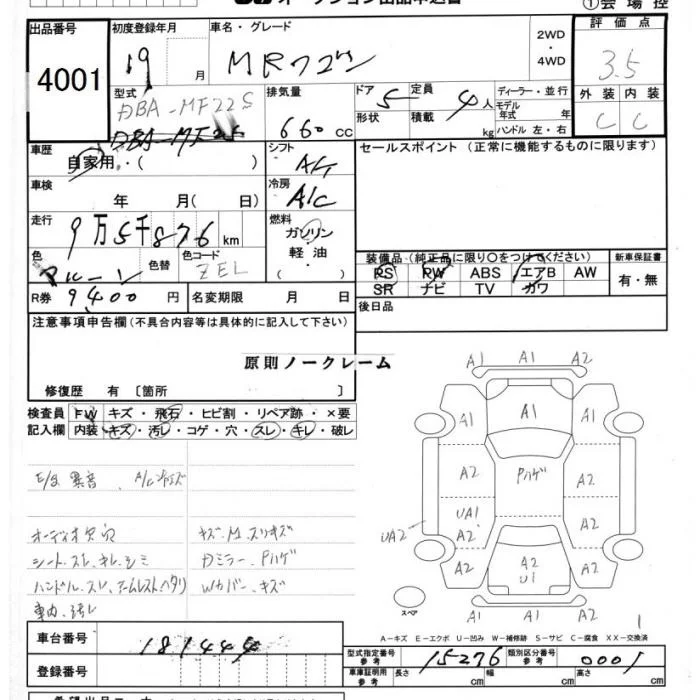 ①会場控
出品番号 初度登録年月 車名・グレード 評価点
4001 19 月 MRワゴン 2WD ・ 4WD 3.5
型式 排気量 ドア 定員 ディーラー・並行 外装 内装
DBA-MF22S 660 cc 5 4人 モデル年式 年 C C
形状 積載 kg ハンドル 左・右
車歴 シフト セールスポイント (正常に機能するものに限ります)
自家用・( ) A/T
車検 年 月( 日) 冷房 A/C
走行 9万5千876km 燃料
ガソリン・軽油
( )
色 マルーン 色替 色コード ZEL
装備品(純正品に限り○をつけてください) 新車保証書
PS PW ABS エアB AW 有・無
SR ナビ TV カワ
R券 9400円 名変期限 月 日
後日品
注意事項申告欄(不具合内容等は具体的に記入して下さい)
原則ノークレーム
修復歴 有〔箇所 〕
検査員 FW キズ・飛石・ヒビ割・リペア跡・×要
記入欄 内装 キズ・汚レ・コゲ・穴・スレ・キレ・破レ
E/g 異音
オーディオ欠品 キズ.M.スリキズ
シート.スレ.キレ.シミ Pハゲ
ハンドル.スレ. Wカバー.キズ
車内.汚レ
A1 A1 A2
A1 A1 A1
A2 Pハゲ A2
UA1
UA2 A2 A2
A2 A2 U1 A2
スペア
A1 A1 A2
A-キズ E-エクボ U-凹み W-補修跡 S-サビ C-腐食 XX-交換済
車台番号 181444
型式指定番号 参考 15276 類別区分番号 参考 0001
登録番号
車庫証明用 参考 長さ cm 幅 cm 高さ cm